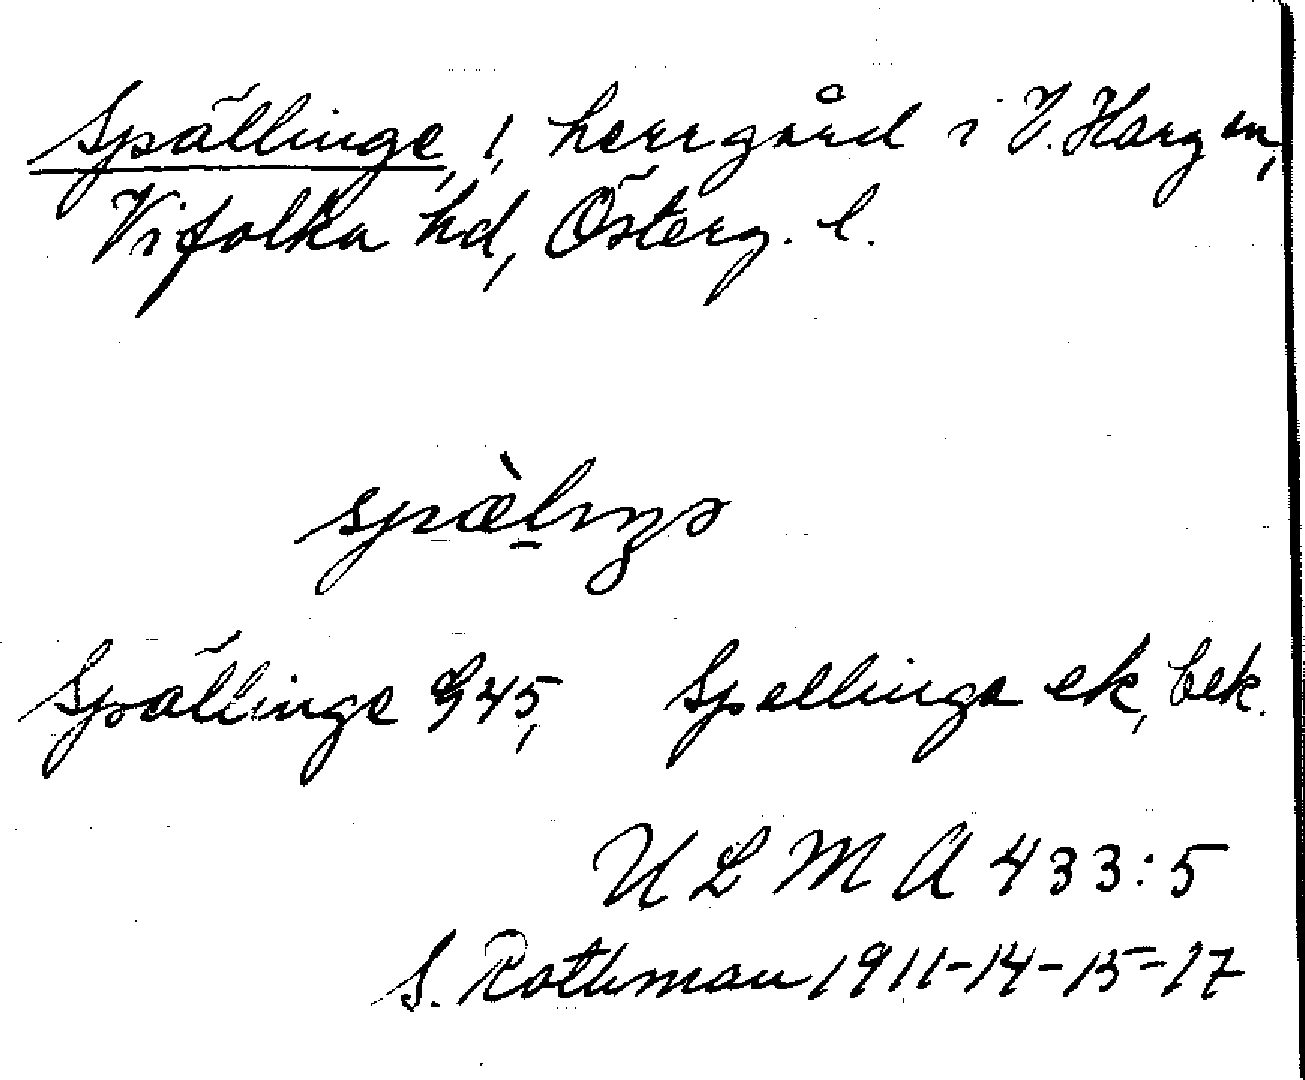 Spällinge, 1, herrgård i V. Harg sn,
Vifolka hd, Österg. l.
spæ̀lıŋə
Spällinge G45, Spellinga ek, bek.
ULMA 433:5
S. Rothman 1911-14-15-17